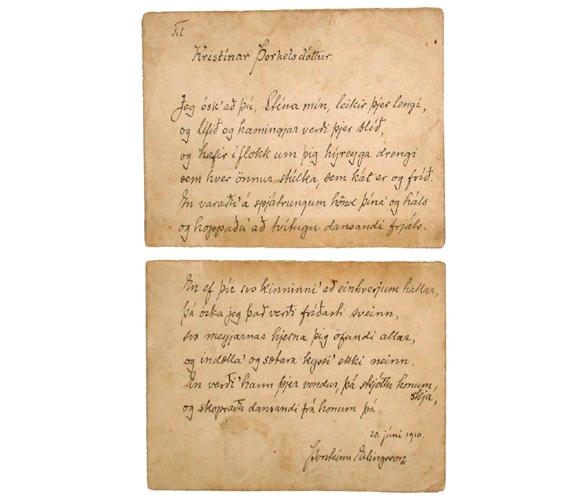 Til
Kristínar Þorkelsdóttur.
Jeg ósk' að þú, Stína mín, leikir þjer lengi,
og lífið og hamingjan verði þjer blíð,
og hafir í flokk um þig hýreyga drengi
sem hver önnur stúlka, sem kát er og fríð.
En varaðu' á spjátrungum hönd þína' og háls
og hoppaðu' að tvítugu dansandi frjáls.
En ef þú svo kinninni' að einhverjum hallar,
þá óska jeg það verði fríðasti sveinn,
svo meyjarnar hjerna þig öfundi allar,
og indælla' og sætara kyssi' ekki neinn.
En verði' hann þjer vondur, þá skjóttu honum skjá,
og skoppaðu dansandi frá honum þá.
20. júní 1910.
Þorsteinn Erlingsson